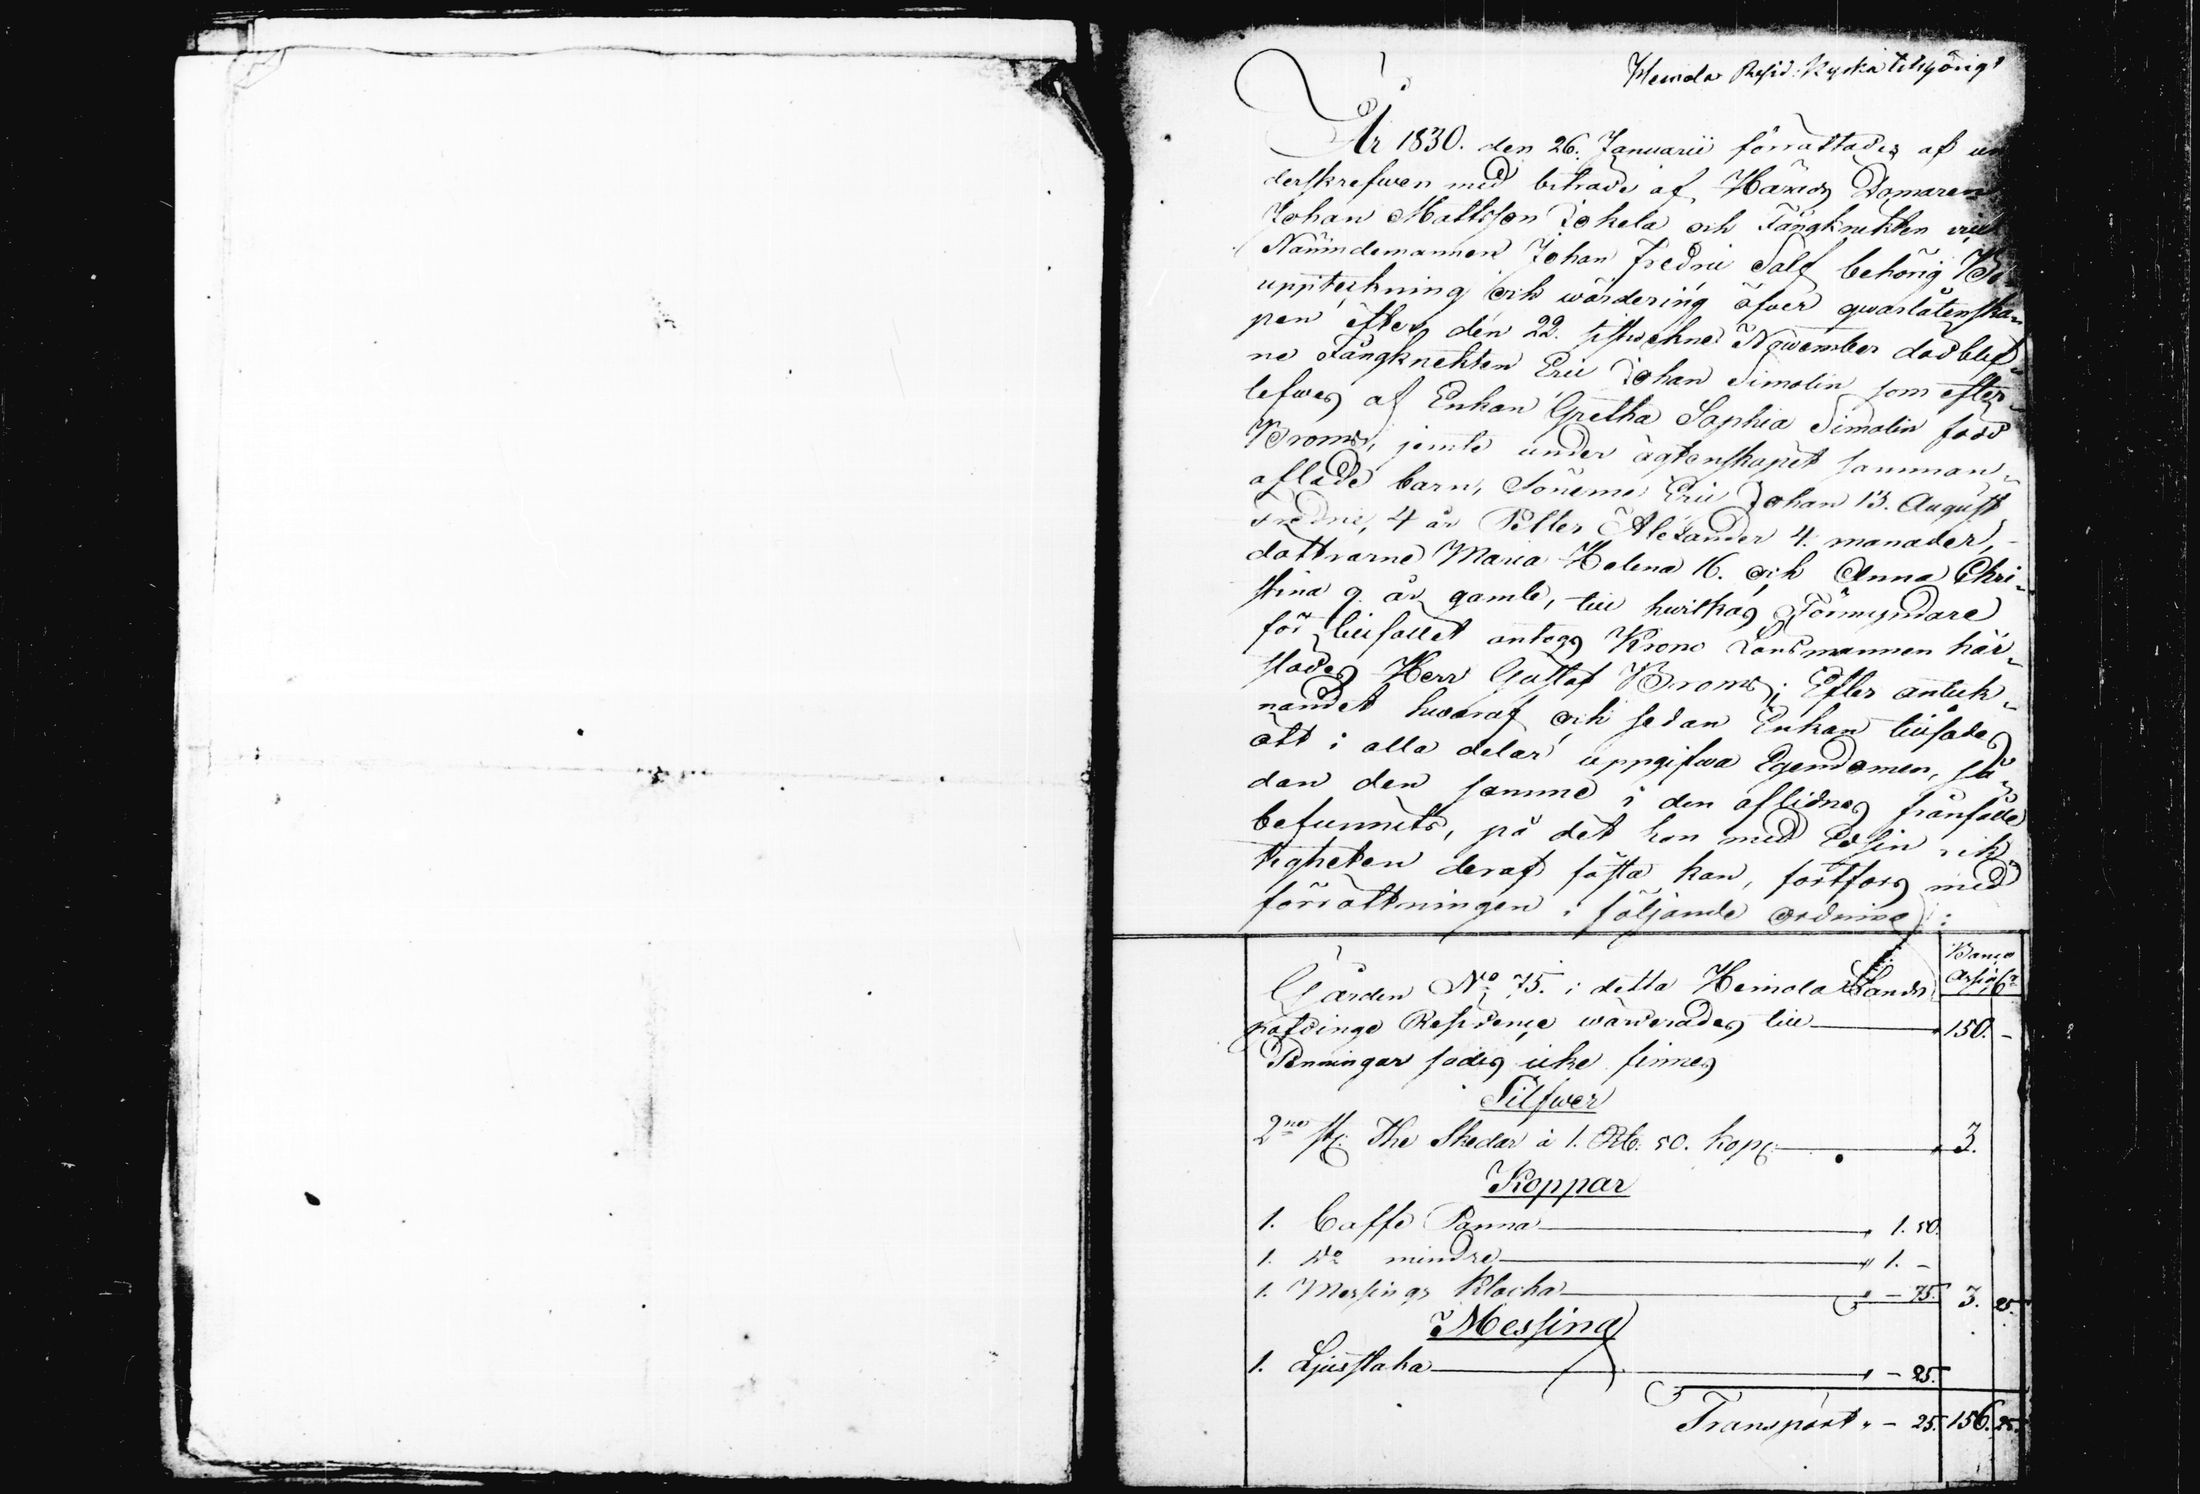 Heinola Resid: Kyrka tillhörigt
År 1830. den 26. Januarii förrättades af un
derskrefwen med biträde af Härads Domaren
Johan Mattsson Jokela och Fångknekten
Nämndemannen Johan Fredric Salf behörig Bo
uppteckning och wärdering öfver qwarlåtenska„
pen efter den 22. sistwekne November död blef„
ne Fångknekten Eric Johan Simolin som efter„
lefwes af Enkan Gretha Sophia Simolin född
Broms, jemte under ägtenskapet samman„
aflade barn, Sönerne Eric Johan 13. August
Fredric, 4 år Petter Alexander 4. månader,
dottrarne Maria Helena 16. och Anna Chri„
stina 9 år gamle, till hwilkas Förmyndare
för tillfället antogs Krono Länsmannen här„
stades Herr Gustaf Broms; Efter anteck„
nandet hwaraf och sedan Enkan tillsades
att i alla delar uppgifwa Egendomen, så„
dan den samme i den aflidnes frånfälle
befunnits, på det hon med Ed sin rik
tigheten deraf fästa kan, fortfors med
förrättningen i följande ordning:
Banco
Assign:
Gården No 75. i detta Heinola Lands
höfdinge Residence wärderades till 150. –
Penningar sades icke finnes
Silfwer
2ne st. The Skedar à 1. Rb. 50. kop. 3.
Koppar
1. Caffe Panna 1. 50.
1. do mindre 1. –
1. Messings Klocka – 75. 3. 25.
Messing
1. Ljusstaka – 25.
Transport „ – 25. 156. 25.